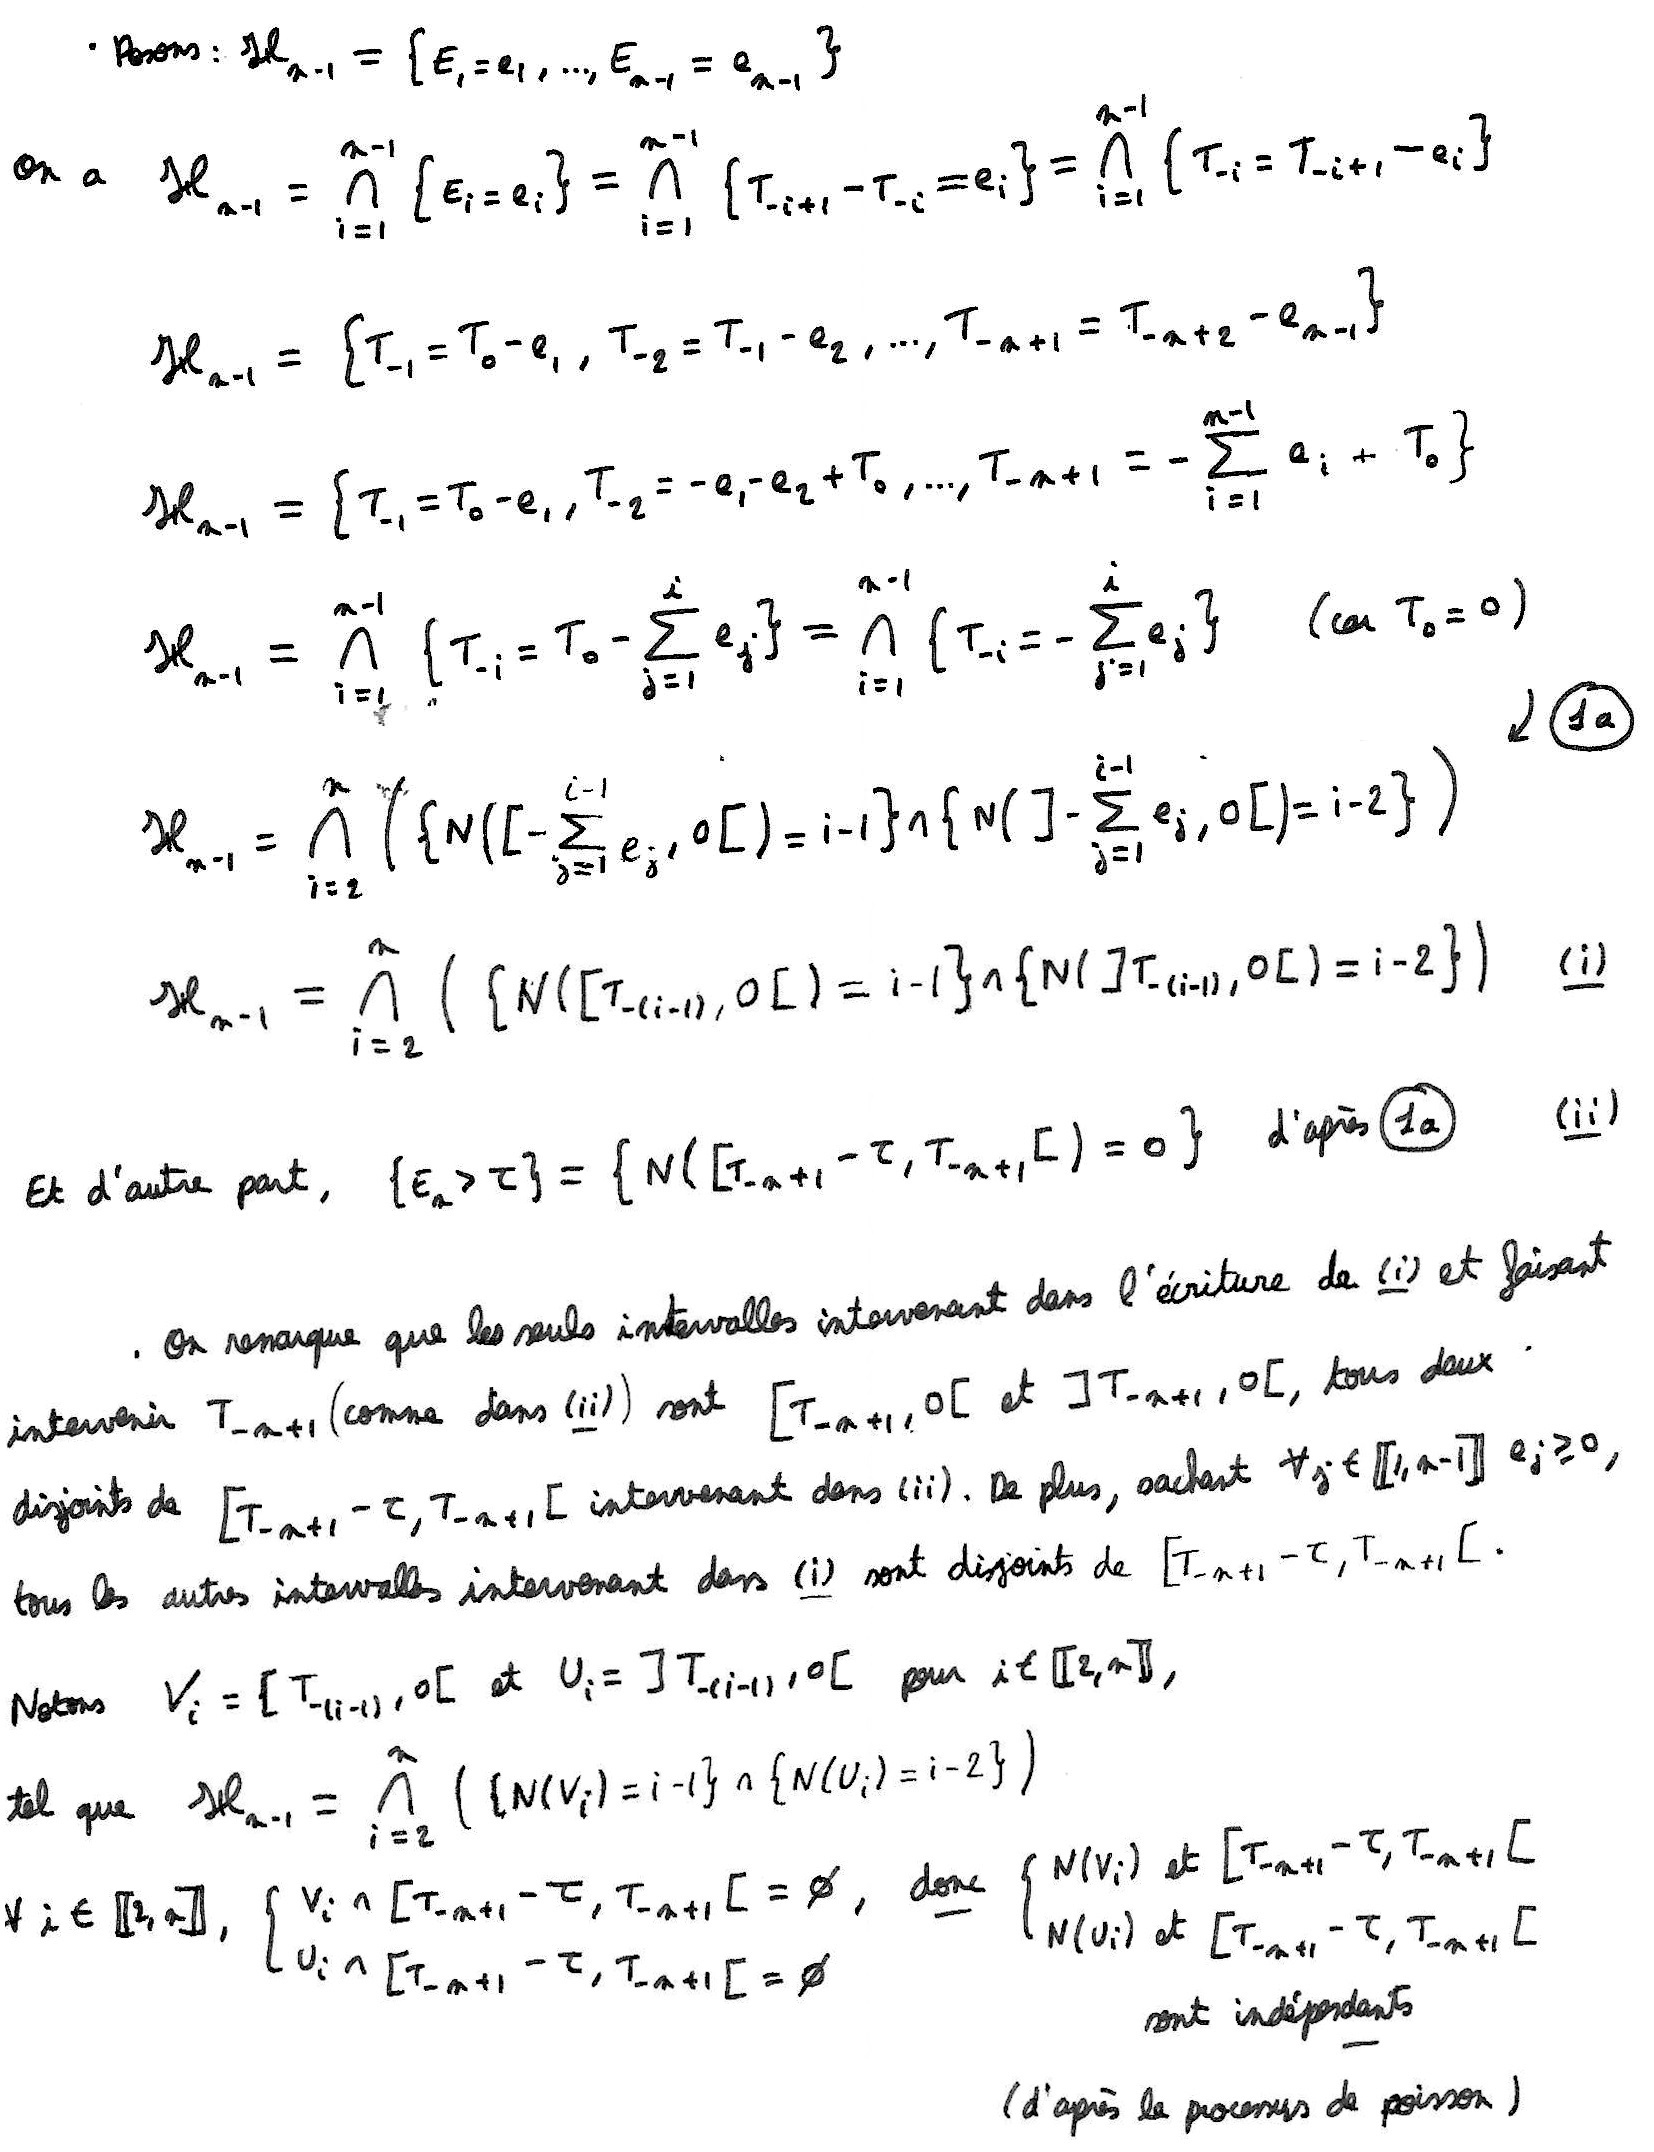 • Posons : ℋₙ₋₁ = {E₁ = e₁, ..., Eₙ₋₁ = eₙ₋₁}
On a ℋₙ₋₁ = ∩_{i=1}^{n-1} {E_i = e_i} = ∩_{i=1}^{n-1} {T_{-i+1} - T_{-i} = e_i} = ∩_{i=1}^{n-1} {T_{-i} = T_{-i+1} - e_i}
ℋₙ₋₁ = {T_{-1} = T_0 - e_1, T_{-2} = T_{-1} - e_2, ..., T_{-n+1} = T_{-n+2} - e_{n-1}}
ℋₙ₋₁ = {T_{-1} = T_0 - e_1, T_{-2} = -e_1 - e_2 + T_0, ..., T_{-n+1} = -∑_{i=1}^{n-1} e_i + T_0}
ℋₙ₋₁ = ∩_{i=1}^{n-1} {T_{-i} = T_0 - ∑_{j=1}^{i} e_j} = ∩_{i=1}^{n-1} {T_{-i} = -∑_{j=1}^{i} e_j} (car T_0 = 0)
↙ 1a
ℋₙ₋₁ = ∩_{i=2}^{n} ({N([-∑_{j=1}^{i-1} e_j, 0[) = i-1} ∩ {N(]-∑_{j=1}^{i-1} e_j, 0[) = i-2})
ℋₙ₋₁ = ∩_{i=2}^{n} ({N([T_{-(i-1)}, 0[) = i-1} ∩ {N(]T_{-(i-1)}, 0[) = i-2}) (i)
Et d'autre part, {E_n > τ} = {N([T_{-n+1} - τ, T_{-n+1}[) = 0} d'après 1a (ii)
. On remarque que les seuls intervalles intervenant dans l'écriture de (i) et faisant
intervenir T_{-n+1} (comme dans (ii)) sont [T_{-n+1}, 0[ et ]T_{-n+1}, 0[, tous deux
disjoints de [T_{-n+1} - τ, T_{-n+1}[ intervenant dans (ii). De plus, sachant ∀j ∈ ⟦1, n-1⟧ e_j ≥ 0,
tous les autres intervalles intervenant dans (i) sont disjoints de [T_{-n+1} - τ, T_{-n+1}[.
Notons V_i = [T_{-(i-1)}, 0[ et U_i = ]T_{-(i-1)}, 0[ pour i ∈ ⟦2, n⟧,
tel que ℋₙ₋₁ = ∩_{i=2}^{n} ({N(V_i) = i-1} ∩ {N(U_i) = i-2})
∀ i ∈ ⟦2, n⟧, { V_i ∩ [T_{-n+1} - τ, T_{-n+1}[ = ∅, donc { N(V_i) et [T_{-n+1} - τ, T_{-n+1}[
U_i ∩ [T_{-n+1} - τ, T_{-n+1}[ = ∅ N(U_i) et [T_{-n+1} - τ, T_{-n+1}[
sont indépendants
(d'après le processus de poisson)